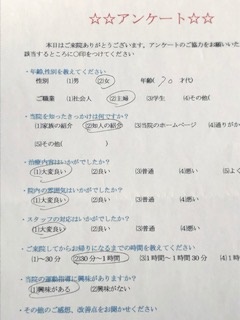 ☆☆アンケート☆☆
本日はご来院ありがとうございます。アンケートのご協力をお願いいた
該当するところに○印をつけてください
・年齢,性別を教えてください
性別 (1)男 (2)女 年齢( 70 才)代
ご職業 (1)社会人 (2)主婦 (3)学生 (4)その他(
・当院を知ったきっかけは何ですか?
(1)家族の紹介 (2)知人の紹介 (3)当院のホームページ (4)通りが
(5)その他( )
・治療内容はいかがでしたか?
(1)大変良い (2)良い (3)普通 (4)悪い (5)よく
・院内の雰囲気はいかがでしたか?
(1)大変良い (2)良い (3)普通 (4)悪い (5)
・スタッフの対応はいかがでしたか?
(1)大変良い (2)良い (3)普通 (4)悪い (
・ご来院してからお帰りになるまでの時間を教えてください
(1)30分 (2)30分~1時間 (3)1時間~1時間30分 (4)1時
・当院の運動指導に興味がありますか?
(1)興味がある (2)興味がない
・その他のご感想、改善点をお聞かせください